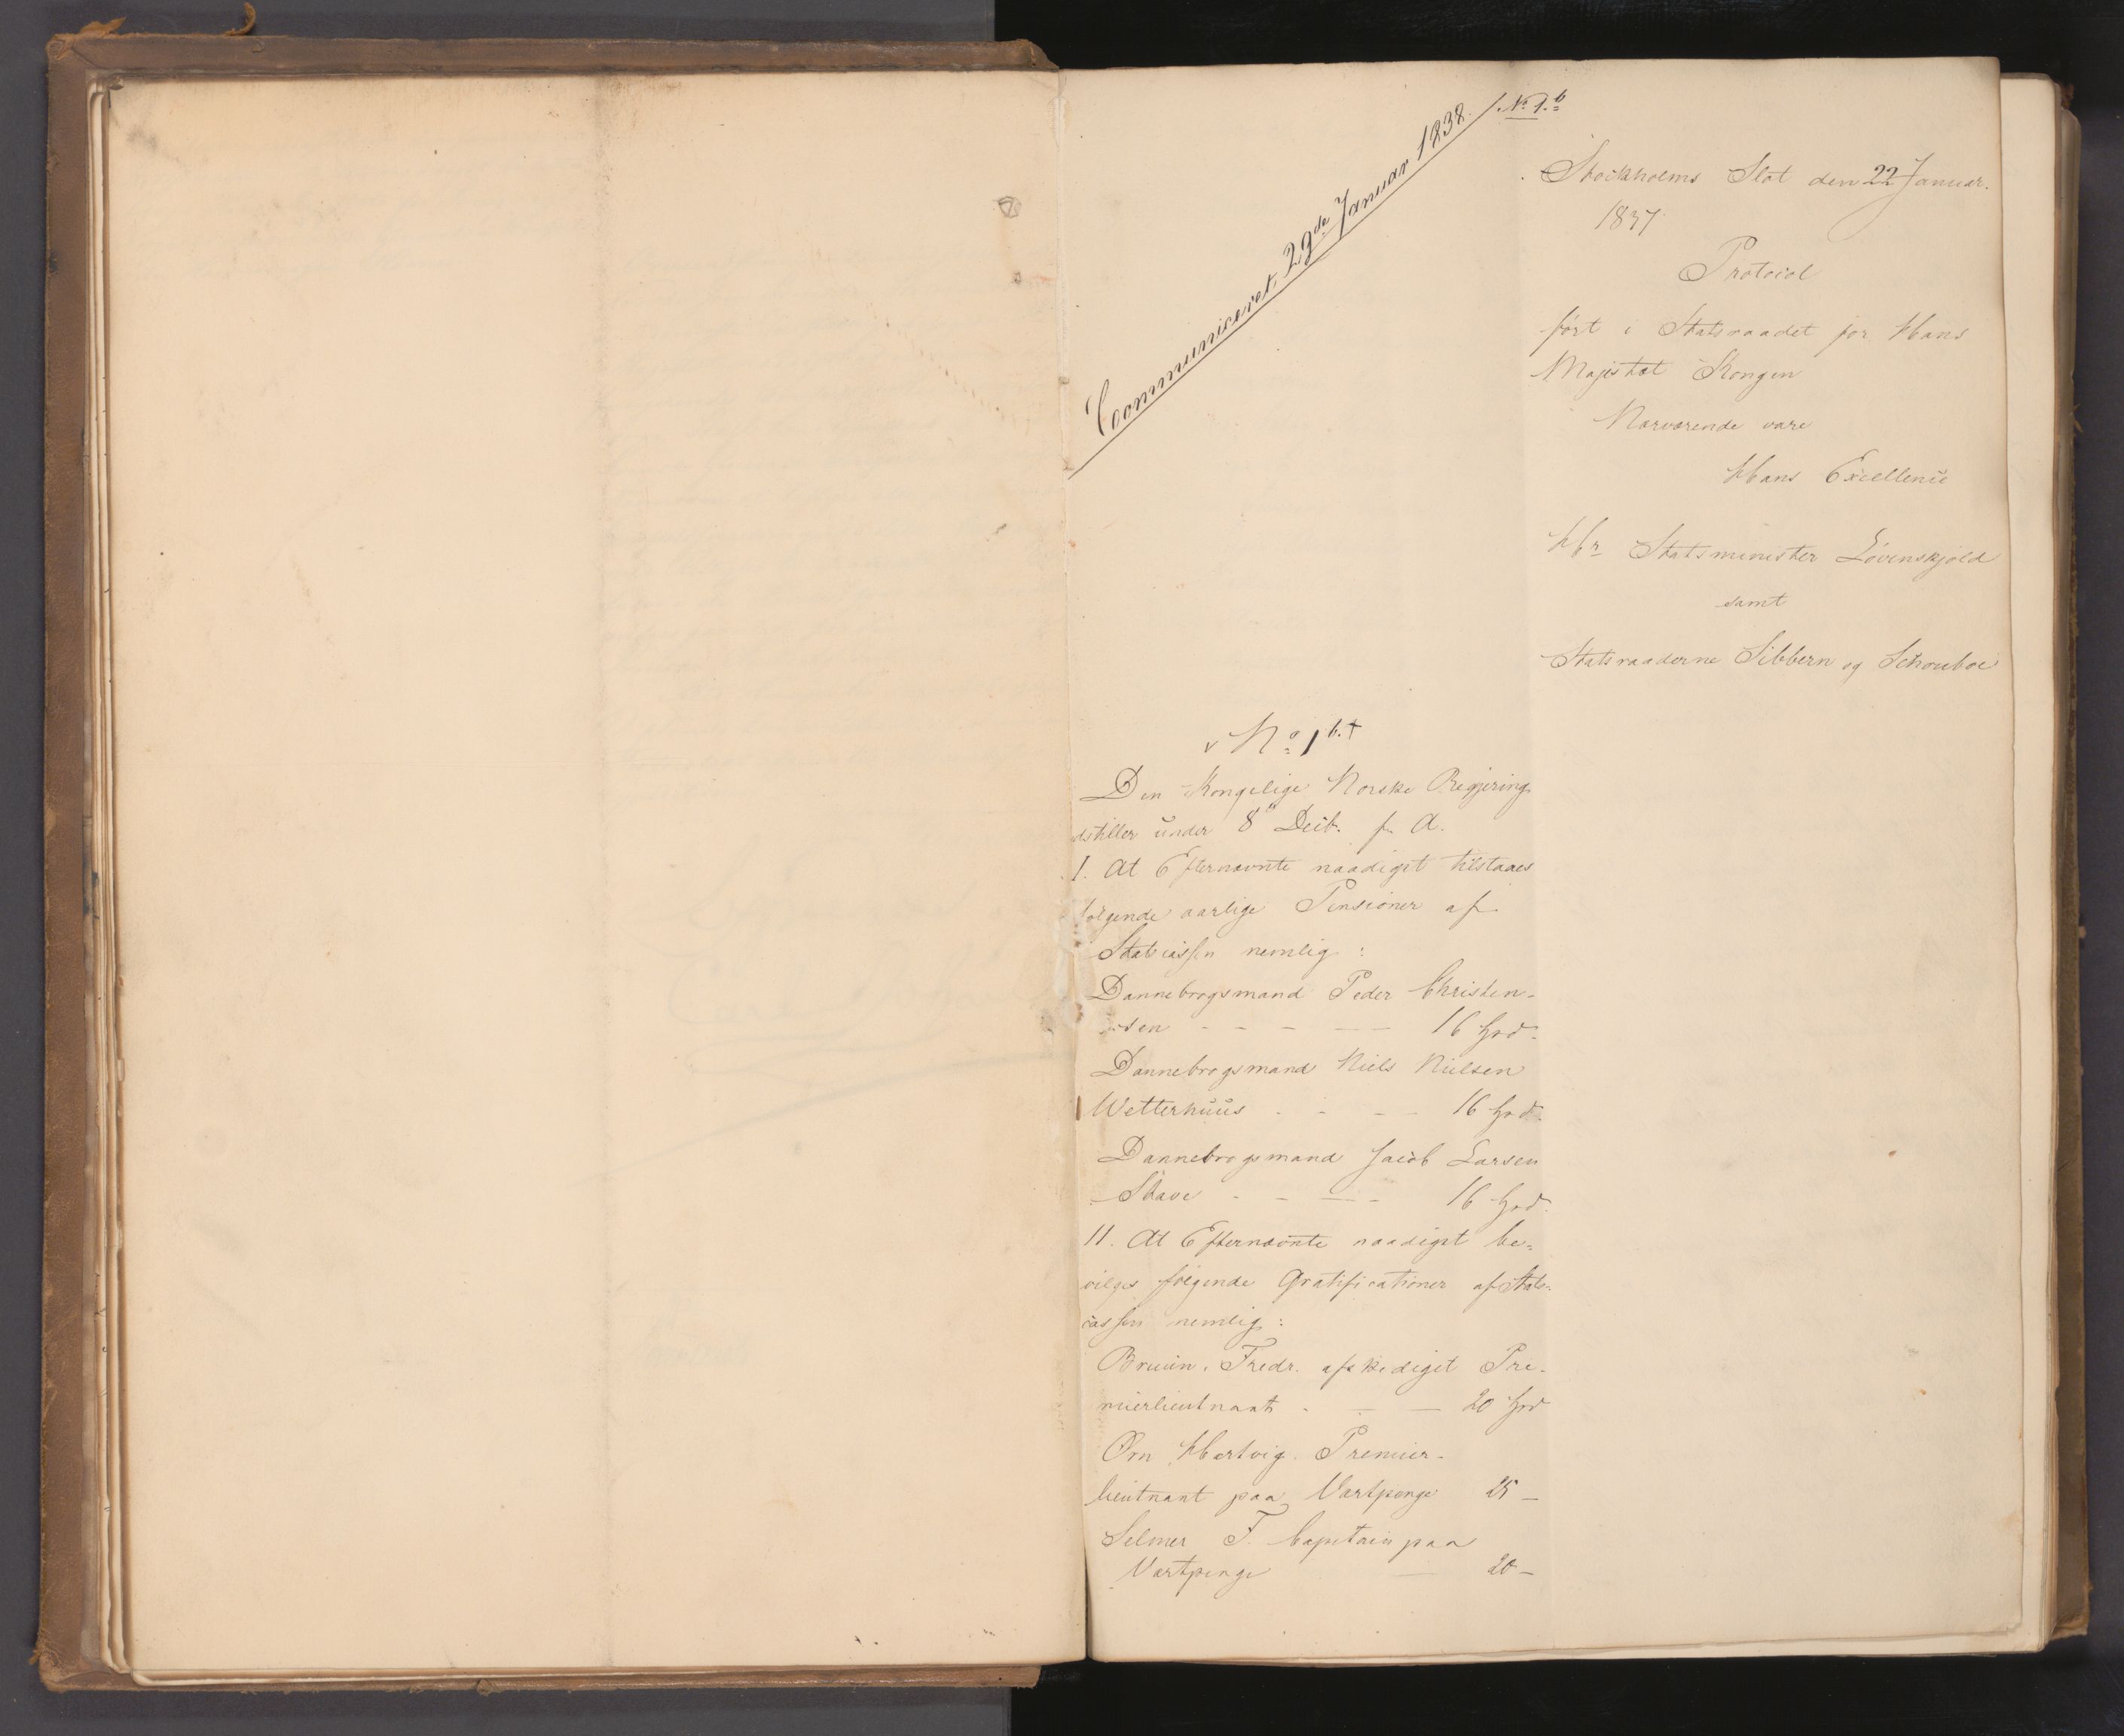 Communiceret, 29de Januar 1838.
/. No 1.b
Stockholms Slot den 22 Januar.
1837
Protocol
ført i Statsraadet for Hans
Majestæt Kongen
Nærværende vare
Hans Excellence
Hr Statsminister Løvenskjold
samt
Statsraaderne Sibbern og Schouboe
No 1 b. +
Den Kongelige Norske Regjering
dstiller under 8de Decb. f. A.
I. At Efternævnte naadigst tilstaaes
følgende aarlige Pensioner af
Statscassen nemlig:
Dannebrogsmand Peder Christen-
sen - - - - - 16 Spd.
Dannebrogsmand Niels Nielsen
Wetterhuus - - - - 16 Spd.
Dannebrogsmand Jacob Larsen
Stave - - - - 16 Spd.
II. At Efternævnte naadigst be-
vilges følgende Gratificationer af Stats-
cassen nemlig:
Bruun, Fredr. afskediget Pre-
mierlieutnant - - - 20 Spd
Ørn Hartvig Premier-
lieutnant paa Vartpenge 25 -
Selmer F. Capitain paa
Vartpenge - 20 -